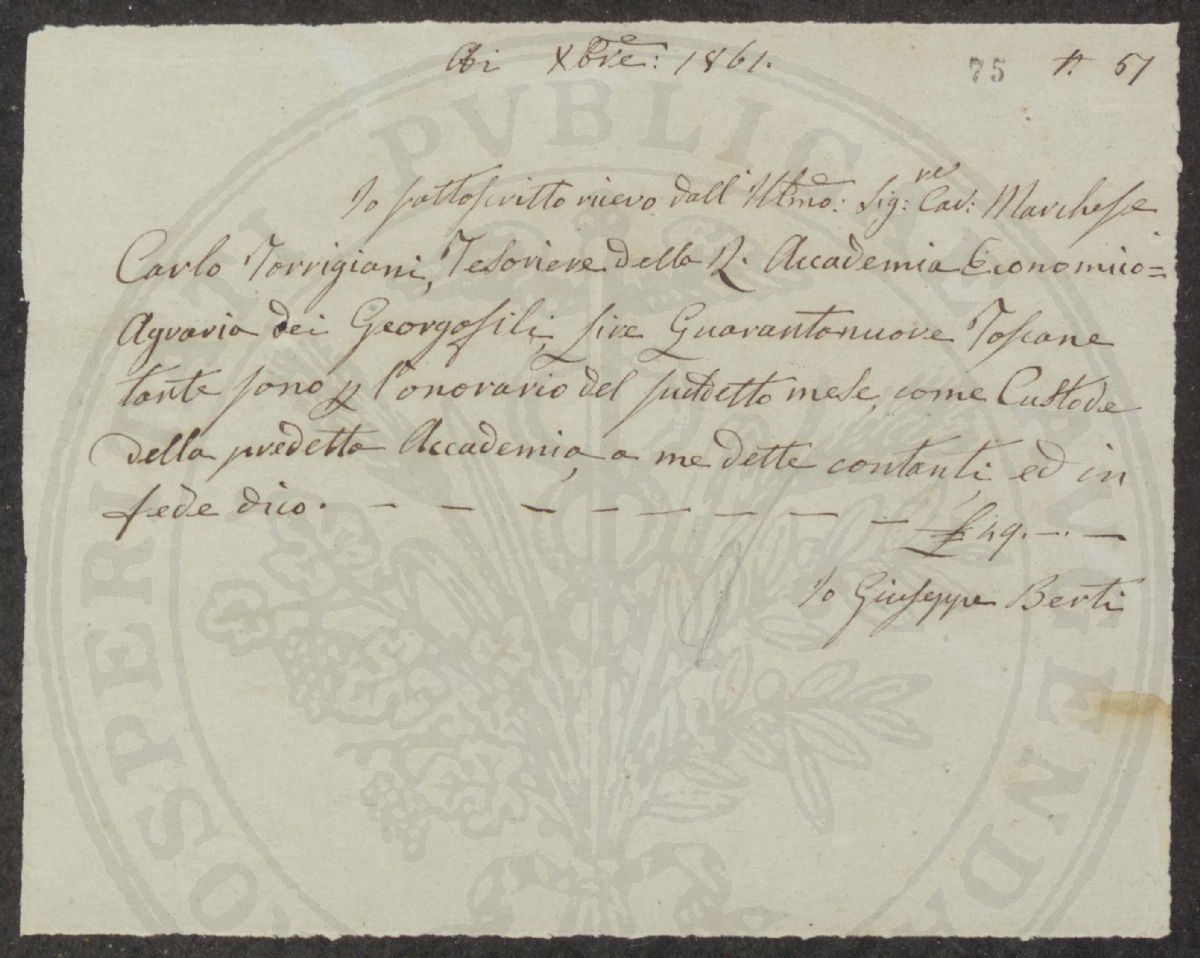 Adi Xbre: 1861.
75 N. 51
Io sottoscritto ricevo dall' Illmo: Sig:re Cav: Marchese
Carlo Torrigiani, Tesoriere della R. Accademia Economico=
Agraria dei Georgofili, Lire Quarantanuove Toscane
tante sono p l'onorario del suddetto mese, come Custode
della predetta Accademia, a me dette contanti, ed in
fede dico. — — — — — — — — £ 49. —. —
Io Giuseppe Berti
PROSPERITATI PVBLICAE AVGENDAE